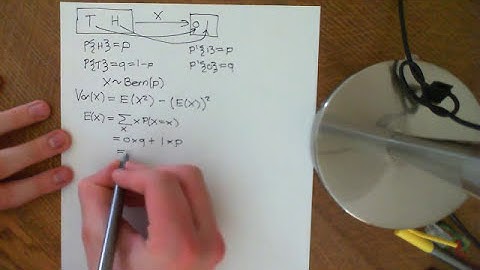 T H X 0 1
P{H}=p P'{1}=p
P{T}=q=1-p P'{0}=q
X~Bern(p)
Var(X) = E(X²) - (E(X))²
E(X) = Σ x P(X=x)
x
= 0×q + 1×p
=